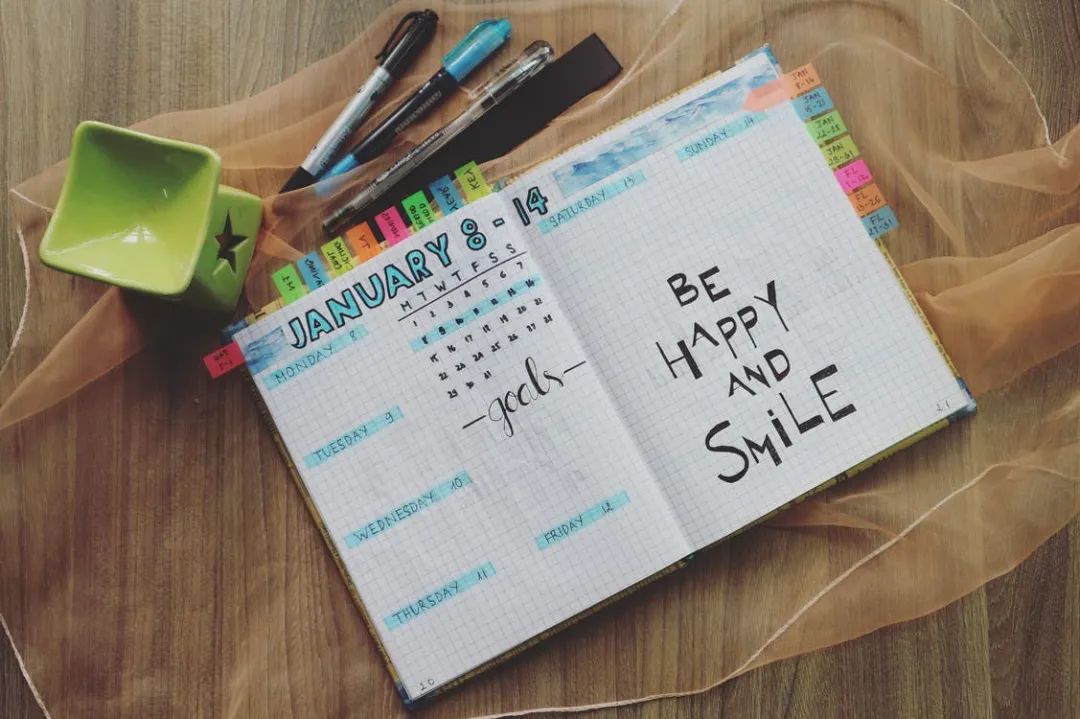 KEY
JANUARY 8-14
M T W T F S S
1 2 3 4 5 6 7
8 9 10 11 12 13 14
15 16 17 18 19 20 21
22 23 24 25 26 27 28
29 30 31
MONDAY 8
TUESDAY 9
WEDNESDAY 10
THURSDAY 11
-goals-
FRIDAY 12
20
SATURDAY 13
SUNDAY 14
BE
HAPPY
AND
SMiLE
21
JAN
8-14
JAN
15-21
JAN
22-28
JAN
29-31